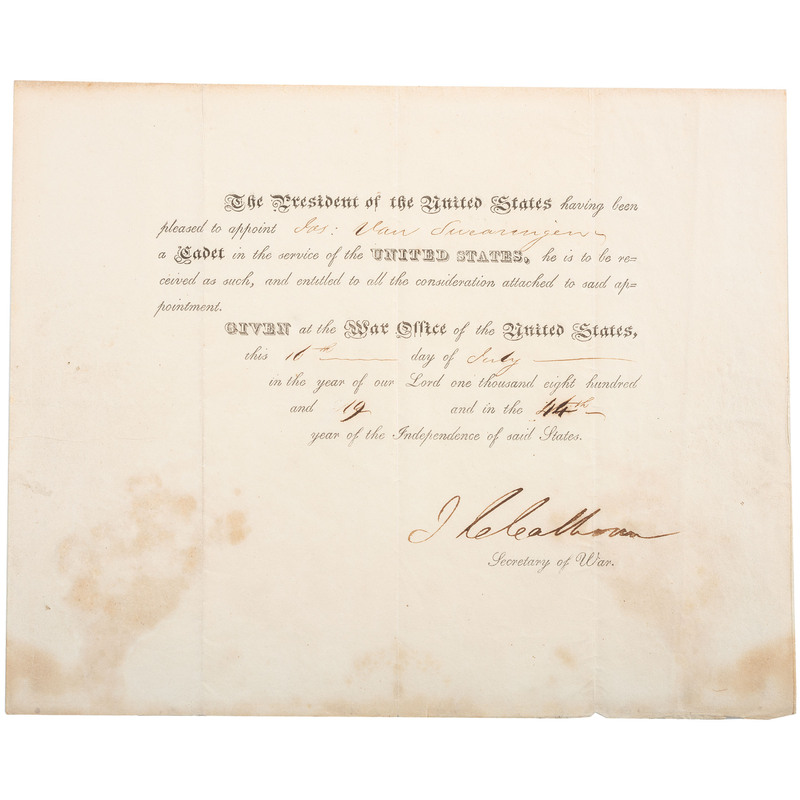 The President of the United States having been
pleased to appoint Jos: Van Swearingen
a Cadet in the service of the UNITED STATES, he is to be re=
ceived as such, and entitled to all the consideration attached to said ap=
pointment.
GIVEN at the War Office of the United States,
this 16th day of July
in the year of our Lord one thousand eight hundred
and 19 and in the 44th
year of the Independence of said States.
J C Calhoun
Secretary of War.